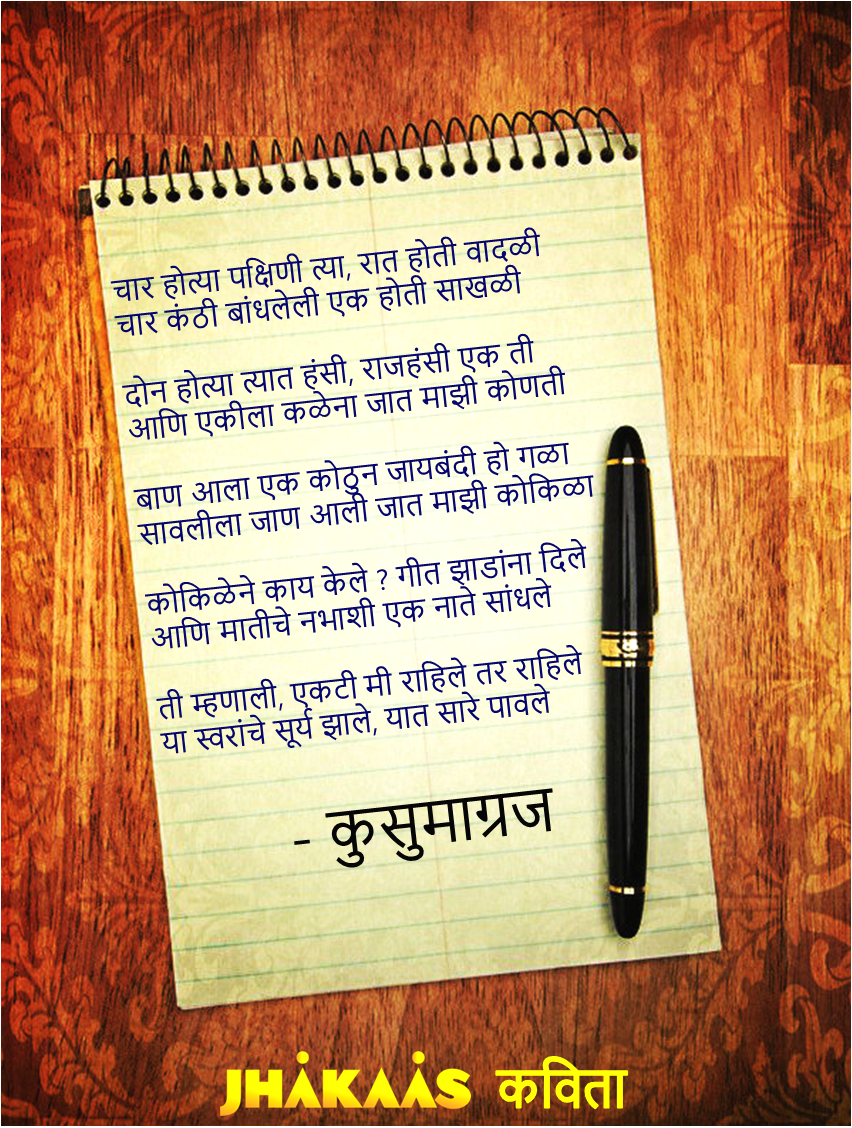 चार होत्या पक्षिणी त्या, रात होती वादळी
चार कंठी बांधलेली एक होती साखळी
दोन होत्या त्यात हंसी, राजहंसी एक ती
आणि एकीला कळेना जात माझी कोणती
बाण आला एक कोठुन जायबंदी हो गळा
सावलीला जाण आली जात माझी कोकिळा
कोकिळेने काय केले ? गीत झाडांना दिले
आणि मातीचे नभाशी एक नाते सांधले
ती म्हणाली, एकटी मी राहिले तर राहिले
या स्वरांचे सूर्य झाले, यात सारे पावले
- कुसुमाग्रज
JHAKAAS कविता